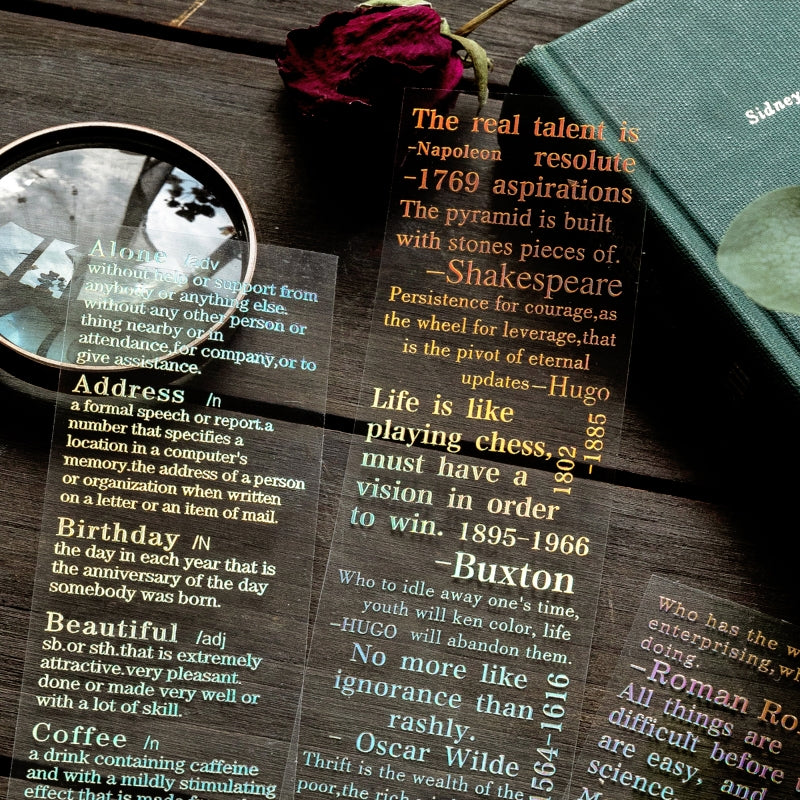 Sidney
The real talent is
-Napoleon resolute
-1769 aspirations
The pyramid is built
with stones pieces of.
-Shakespeare
Persistence for courage,as
the wheel for leverage,that
is the pivot of eternal
updates-Hugo
1802
-1885
Life is like
playing chess,
must have a
vision in order
to win. 1895-1966
-Buxton
Who to idle away one's time,
youth will ken color, life
-HUGO will abandon them.
No more like
ignorance than
rashly.
- Oscar Wilde
1564-1616
Thrift is the wealth of the
poor,the rich
Alone /adv
without help or support from
anybody or anything else.
without any other person or
thing nearby or in
attendance,for company,or to
give assistance.
Address /n
a formal speech or report.a
number that specifies a
location in a computer's
memory.the address of a person
or organization when written
on a letter or an item of mail.
Birthday /N
the day in each year that is
the anniversary of the day
somebody was born.
Beautiful /adj
sb.or sth.that is extremely
attractive.very pleasant.
done or made very well or
with a lot of skill.
Coffee /n
a drink containing caffeine
and with a mildly stimulating
effect that is made
Who has the
enterprising,
doing.
-Roman
All things are
difficult before
are easy, and
science